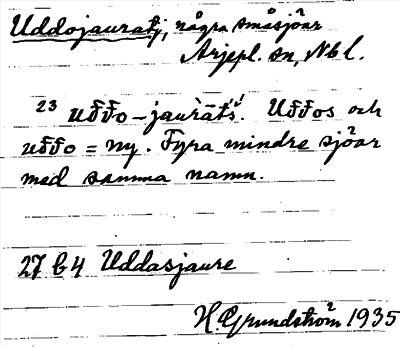 Uddojauratj, några småsjöar
Arjepl. sn, Nbl.
23 uđđo-jaurātš́. Uđđos och
uđđo = ny. Fyra mindre sjöar
med samma namn.
27 b 4 Uddasjaure
H. Grundström 1935